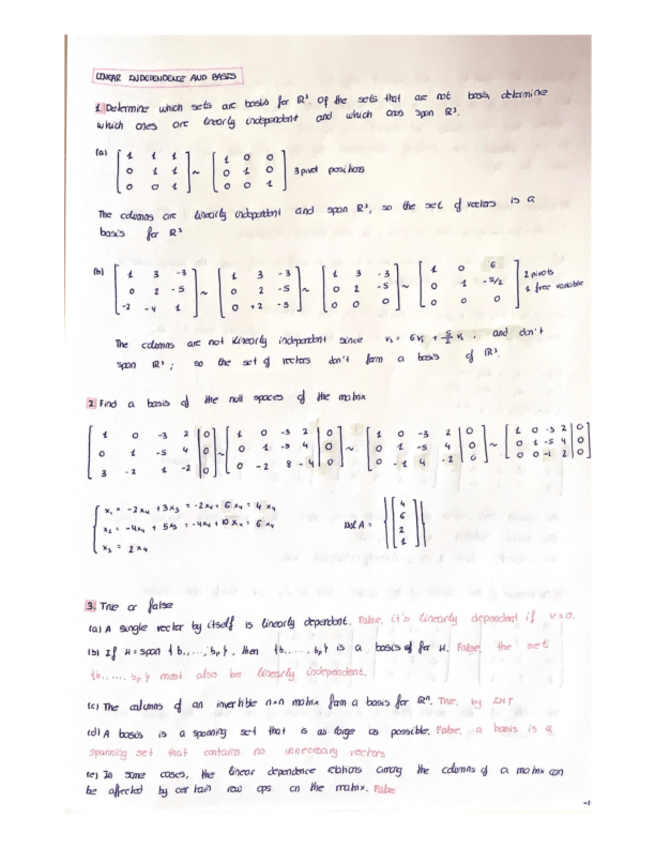 LINEAR INDEPENDENCE AND BASIS
1. Determine which sets are basis for R³. Of the sets that are not basis, determine
which ones are linearly independent and which ones span R³.
(a) [1 1 1; 0 1 1; 0 0 1] ~ [1 0 0; 0 1 0; 0 0 1] 3 pivot positions
The columns are linearly independent and span R³, so the set of vectors is a
basis for R³
(b) [1 3 -3; 0 2 -5; -2 -4 1] ~ [1 3 -3; 0 2 -5; 0 +2 -5] ~ [1 3 -3; 0 2 -5; 0 0 0] ~ [1 0 6; 0 1 -5/2; 0 0 0] 2 pivots
1 free variable
The columns are not linearly independent since and don't
span R³; so the set of vectors don't form a basis of R³.
2. Find a basis of the null spaces of the matrix
[1 0 -3 2 | 0; 0 1 -5 4 | 0; 3 -2 1 -2 | 0] ~ [1 0 -3 2 | 0; 0 1 -5 4 | 0; 0 -2 8 -4 | 0] ~ [1 0 -3 2 | 0; 0 1 -5 4 | 0; 0 -1 4 -2 | 0] ~ [1 0 -3 2 | 0; 0 1 -5 4 | 0; 0 0 -1 2 | 0]
x₁ = -2x₄ + 3x₃ = -2x₄ + 6x₄ = 4x₄
x₂ = -4x₄ + 5x₃ = -4x₄ + 10x₄ = 6x₄
x₃ = 2x₄
Nul A = {[4; 6; 2; 1]}
3. True or false
(a) A single vector by itself is linearly dependent. False, it's linearly dependent if v=0.
(b) If H = span {b₁,...., bₚ}, then {b₁,...., bₚ} is a basis of for H. False, the set
{b₁,...., bₚ} must also be linearly independent.
(c) The columns of an invertible n×n matrix form a basis for Rⁿ. True, by IMT
(d) A basis is a spanning set that is as large as possible. False, a basis is a
spanning set that contains no unnecessary vectors
(e) In some cases, the linear dependence relations among the columns of a matrix can
be affected by certain row ops on the matrix. False